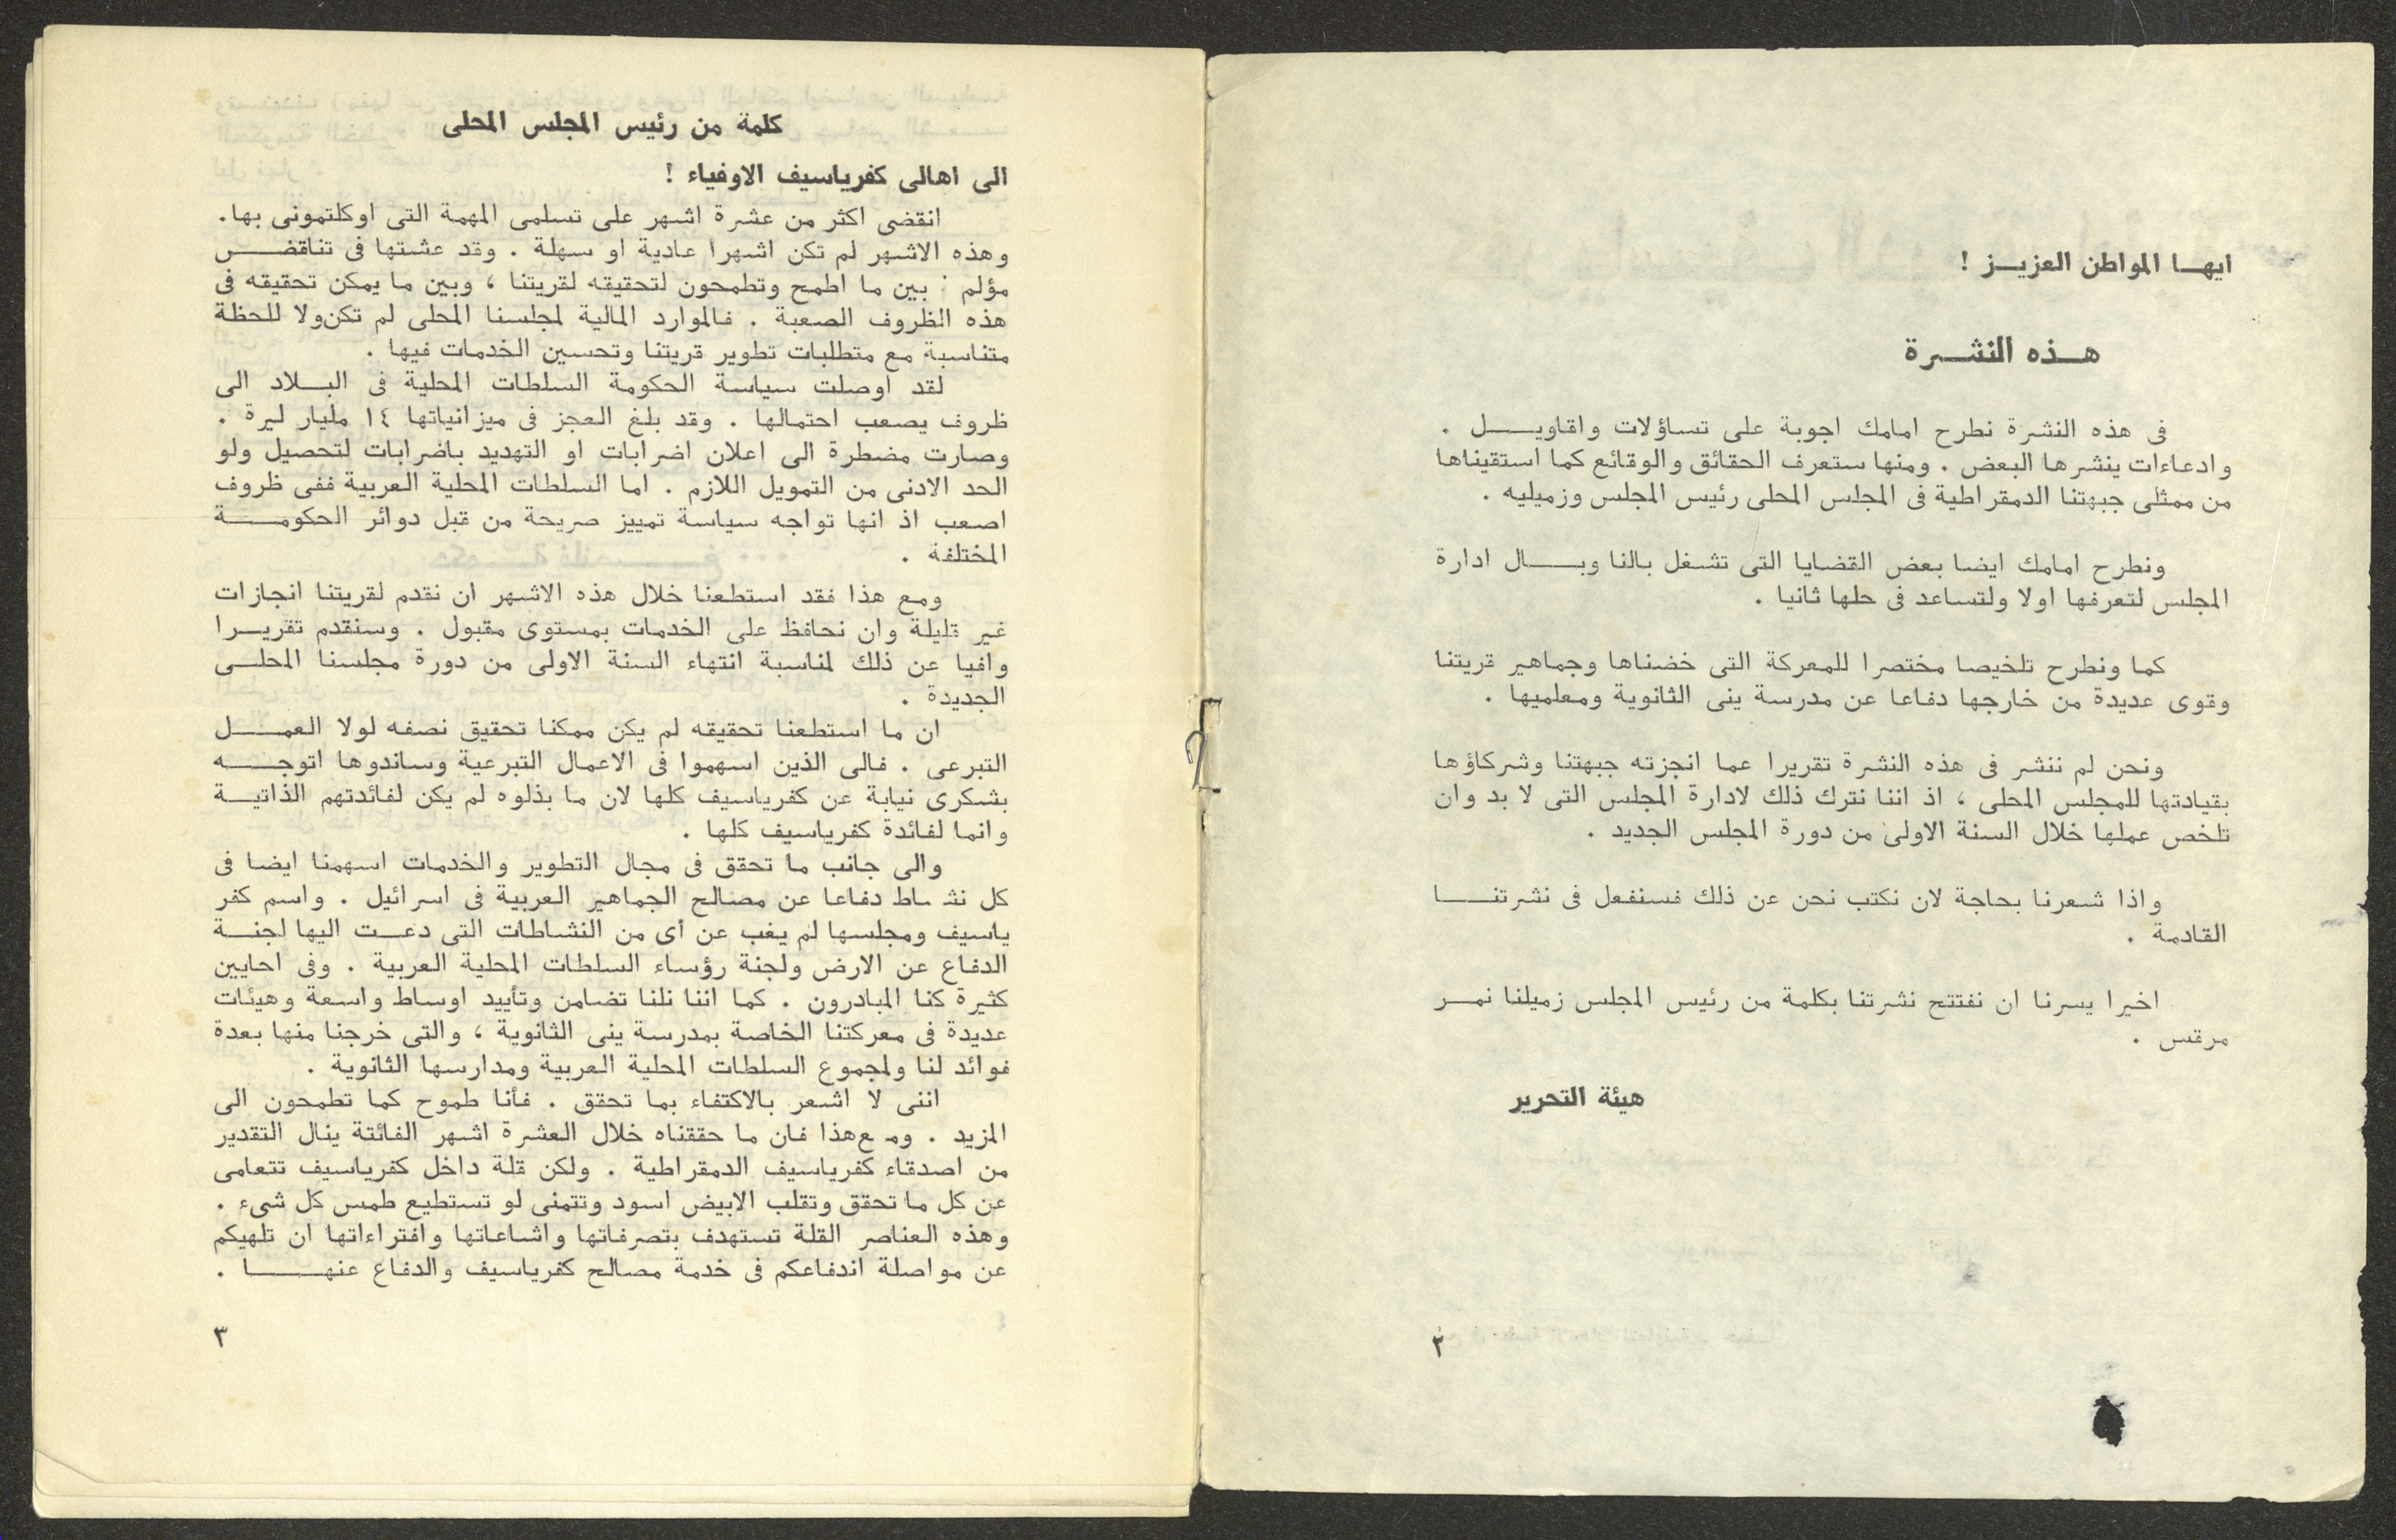 ايها المواطن العزيز !
هذه النشرة
فى هذه النشرة نطرح امامك اجوبة على تساؤلات واقاويل .
وادعاءات ينشرها البعض . ومنها ستعرف الحقائق والوقائع كما استقيناها
من ممثلى جبهتنا الدمقراطية فى المجلس المحلى رئيس المجلس وزميليه .
ونطرح امامك ايضا بعض القضايا التى تشغل بالنا وبال ادارة
المجلس لتعرفها اولا ولتساعد فى حلها ثانيا .
كما ونطرح تلخيصا مختصرا للمعركة التى خضناها وجماهير قريتنا
وقوى عديدة من خارجها دفاعا عن مدرسة ينى الثانوية ومعلميها .
ونحن لم ننشر فى هذه النشرة تقريرا عما انجزته جبهتنا وشركاؤها
بقيادتها للمجلس المحلى ، اذ اننا نترك ذلك لادارة المجلس التى لا بد وان
تلخص عملها خلال السنة الاولى من دورة المجلس الجديد .
واذا شعرنا بحاجة لان نكتب نحن عن ذلك فسنفعل فى نشرتنا
القادمة .
اخيرا يسرنا ان نفتتح نشرتنا بكلمة من رئيس المجلس زميلنا نمر
مرقس .
هيئة التحرير
٢
كلمة من رئيس المجلس المحلى
الى اهالى كفرياسيف الاوفياء !
انقضى اكثر من عشرة اشهر على تسلمى المهمة التى اوكلتمونى بها.
وهذه الاشهر لم تكن اشهرا عادية او سهلة . وقد عشتها فى تناقض
مؤلم : بين ما اطمح وتطمحون لتحقيقه لقريتنا ، وبين ما يمكن تحقيقه فى
هذه الظروف الصعبة . فالموارد المالية لمجلسنا المحلى لم تكن ولا للحظة
متناسبة مع متطلبات تطوير قريتنا وتحسين الخدمات فيها .
لقد اوصلت سياسة الحكومة السلطات المحلية فى البلاد الى
ظروف يصعب احتمالها . وقد بلغ العجز فى ميزانياتها ١٤ مليار ليرة .
وصارت مضطرة الى اعلان اضرابات او التهديد باضرابات لتحصيل ولو
الحد الادنى من التمويل اللازم . اما السلطات المحلية العربية ففى ظروف
اصعب اذ انها تواجه سياسة تمييز صريحة من قبل دوائر الحكومة
المختلفة .
ومع هذا فقد استطعنا خلال هذه الاشهر ان نقدم لقريتنا انجازات
غير قليلة وان نحافظ على الخدمات بمستوى مقبول . وسنقدم تقريرا
وافيا عن ذلك لمناسبة انتهاء السنة الاولى من دورة مجلسنا المحلى
الجديدة .
ان ما استطعنا تحقيقه لم يكن ممكنا تحقيق نصفه لولا العمل
التبرعى . فالى الذين اسهموا فى الاعمال التبرعية وساندوها اتوجه
بشكرى نيابة عن كفرياسيف كلها لان ما بذلوه لم يكن لفائدتهم الذاتية
وانما لفائدة كفرياسيف كلها .
والى جانب ما تحقق فى مجال التطوير والخدمات اسهمنا ايضا فى
كل نشاط دفاعا عن مصالح الجماهير العربية فى اسرائيل . واسم كفر
ياسيف ومجلسها لم يغب عن أى من النشاطات التى دعت اليها لجنة
الدفاع عن الارض ولجنة رؤساء السلطات المحلية العربية . وفى احايين
كثيرة كنا المبادرون . كما اننا نلنا تضامن وتأييد اوساط واسعة وهيئات
عديدة فى معركتنا الخاصة بمدرسة ينى الثانوية ، والتى خرجنا منها بعدة
فوائد لنا ولمجموع السلطات المحلية العربية ومدارسها الثانوية .
اننى لا اشعر بالاكتفاء بما تحقق . فأنا طموح كما تطمحون الى
المزيد . ومع هذا فان ما حققناه خلال العشرة اشهر الفائتة ينال التقدير
من اصدقاء كفرياسيف الدمقراطية . ولكن قلة داخل كفرياسيف تتعامى
عن كل ما تحقق وتقلب الابيض اسود وتتمنى لو تستطيع طمس كل شىء .
وهذه العناصر القلة تستهدف بتصرفاتها واشاعاتها وافتراءاتها ان تلهيكم
عن مواصلة اندفاعكم فى خدمة مصالح كفرياسيف والدفاع عنها .
٣